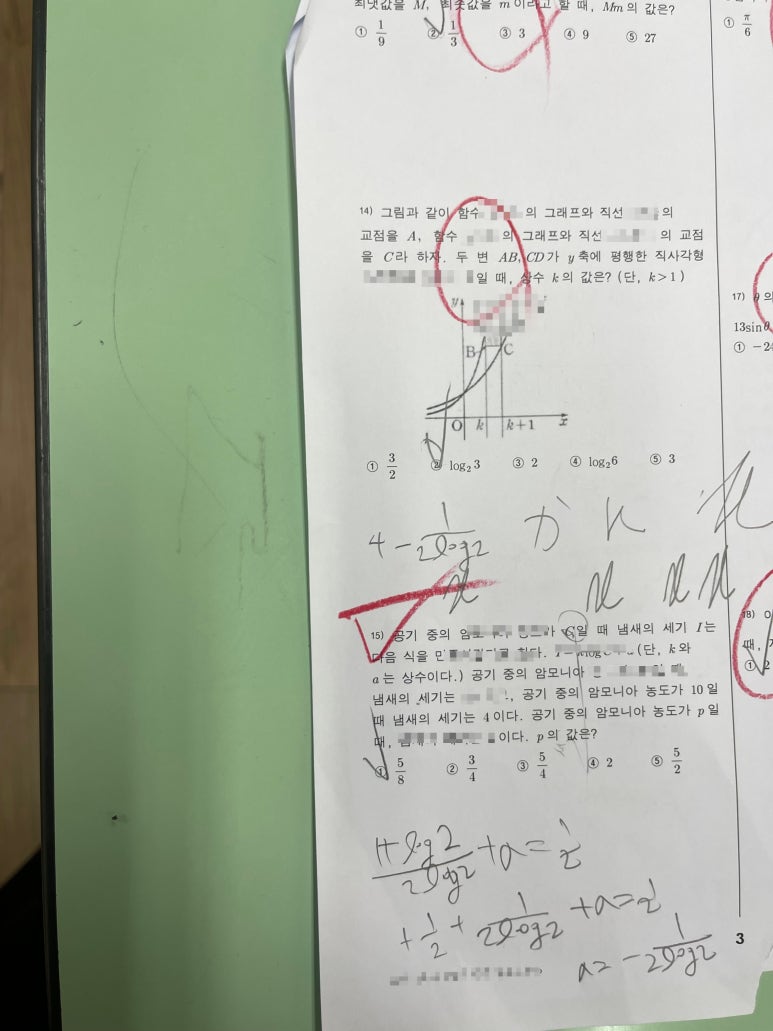 최댓값을 M, 최솟값을 m이라고 할 때, Mm의 값은?
① 1/9 ② 1/3 ③ 3 ④ 9 ⑤ 27
14) 그림과 같이 함수 의 그래프와 직선 의
교점을 A, 함수 의 그래프와 직선 의 교점
을 C라 하자. 두 변 AB, CD가 y축에 평행한 직사각형
일 때, 상수 k의 값은? (단, k>1)
y
B C
O k k+1 x
① 3/2 ② log₂3 ③ 2 ④ log₂6 ⑤ 3
4 - 1/2log2
15) 공기 중의 일 때 냄새의 세기 I는
다음 식을 (단, k와
a는 상수이다.) 공기 중의 암모니아
냄새의 세기는 , 공기 중의 암모니아 농도가 10일
때 냄새의 세기는 4이다. 공기 중의 암모니아 농도가 p일
때, 이다. p의 값은?
① 5/8 ② 3/4 ③ 5/4 ④ 2 ⑤ 5/2
1+log2/2log2 + a = 1/2
+ 1/2 + 1/2log2 + a = 1/2
a = - 1/2log2
3
① π/6
17) θ의
13sinθ
① -2
18)
때,
① 2